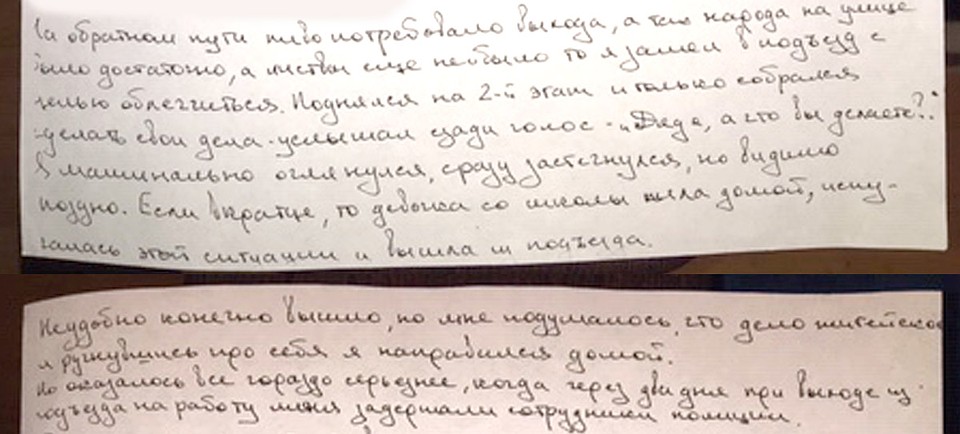 На обратном пути пиво потребовало выхода, а так народа на улице
было достаточно, а листвы ещё не было то я зашел в подъезд с
целью облегчиться. Поднялся на 2-й этаж и только собрался
сделать свои дела - услышал сзади голос - „Дядя, а что вы делаете?"
Я машинально оглянулся, сразу застегнулся, но видимо
поздно. Если вкратце, то девочка со школы шла домой, испу-
галась этой ситуации и вышла из подъезда.
Неудобно конечно вышло, но мне подумалось, что дело житейское
и ругнувшись про себя я направился домой.
Но оказалось все гораздо серьезнее, когда через два дня при выходе из
подъезда на работу меня задержали сотрудники полиции.